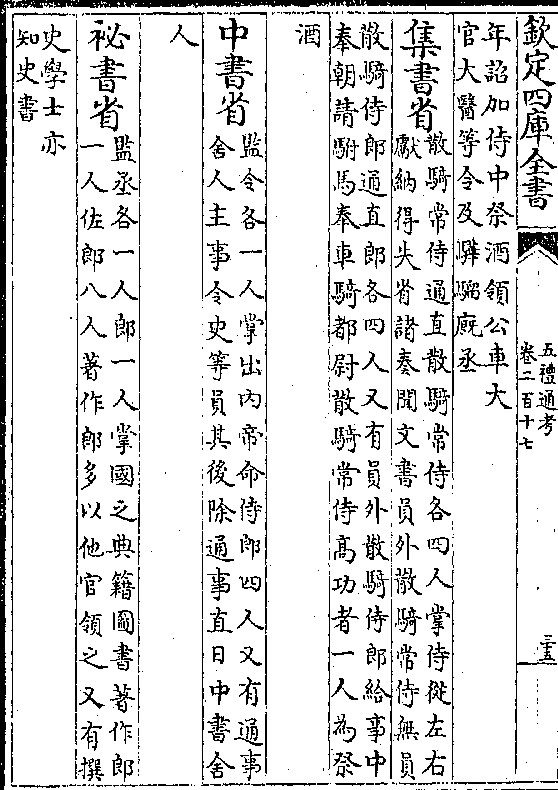 欽定四庫全書
五禮通考
卷二百十七
三五
年詔加侍中祭酒領公車大
官大醫等令及驊騮廐丞
集書省
散騎常侍通直散騎常侍各四人掌侍從左右
獻納得失省諸奏聞文書員外散騎常侍無員
散騎侍郎通直郎各四人又有員外散騎侍郎給事中
奉朝請駙馬奉車騎都尉散騎常侍髙功者一人為祭
酒
中書省
監令各一人掌出内帝命侍郎四人又有通事
舍人主事令史等員其後除通事直曰中書舍
人
祕書省
監丞各一人郎一人掌國之典籍圖書著作郎
一人佐郎八人著作郎多以他官領之又有撰
史學士亦
知史書